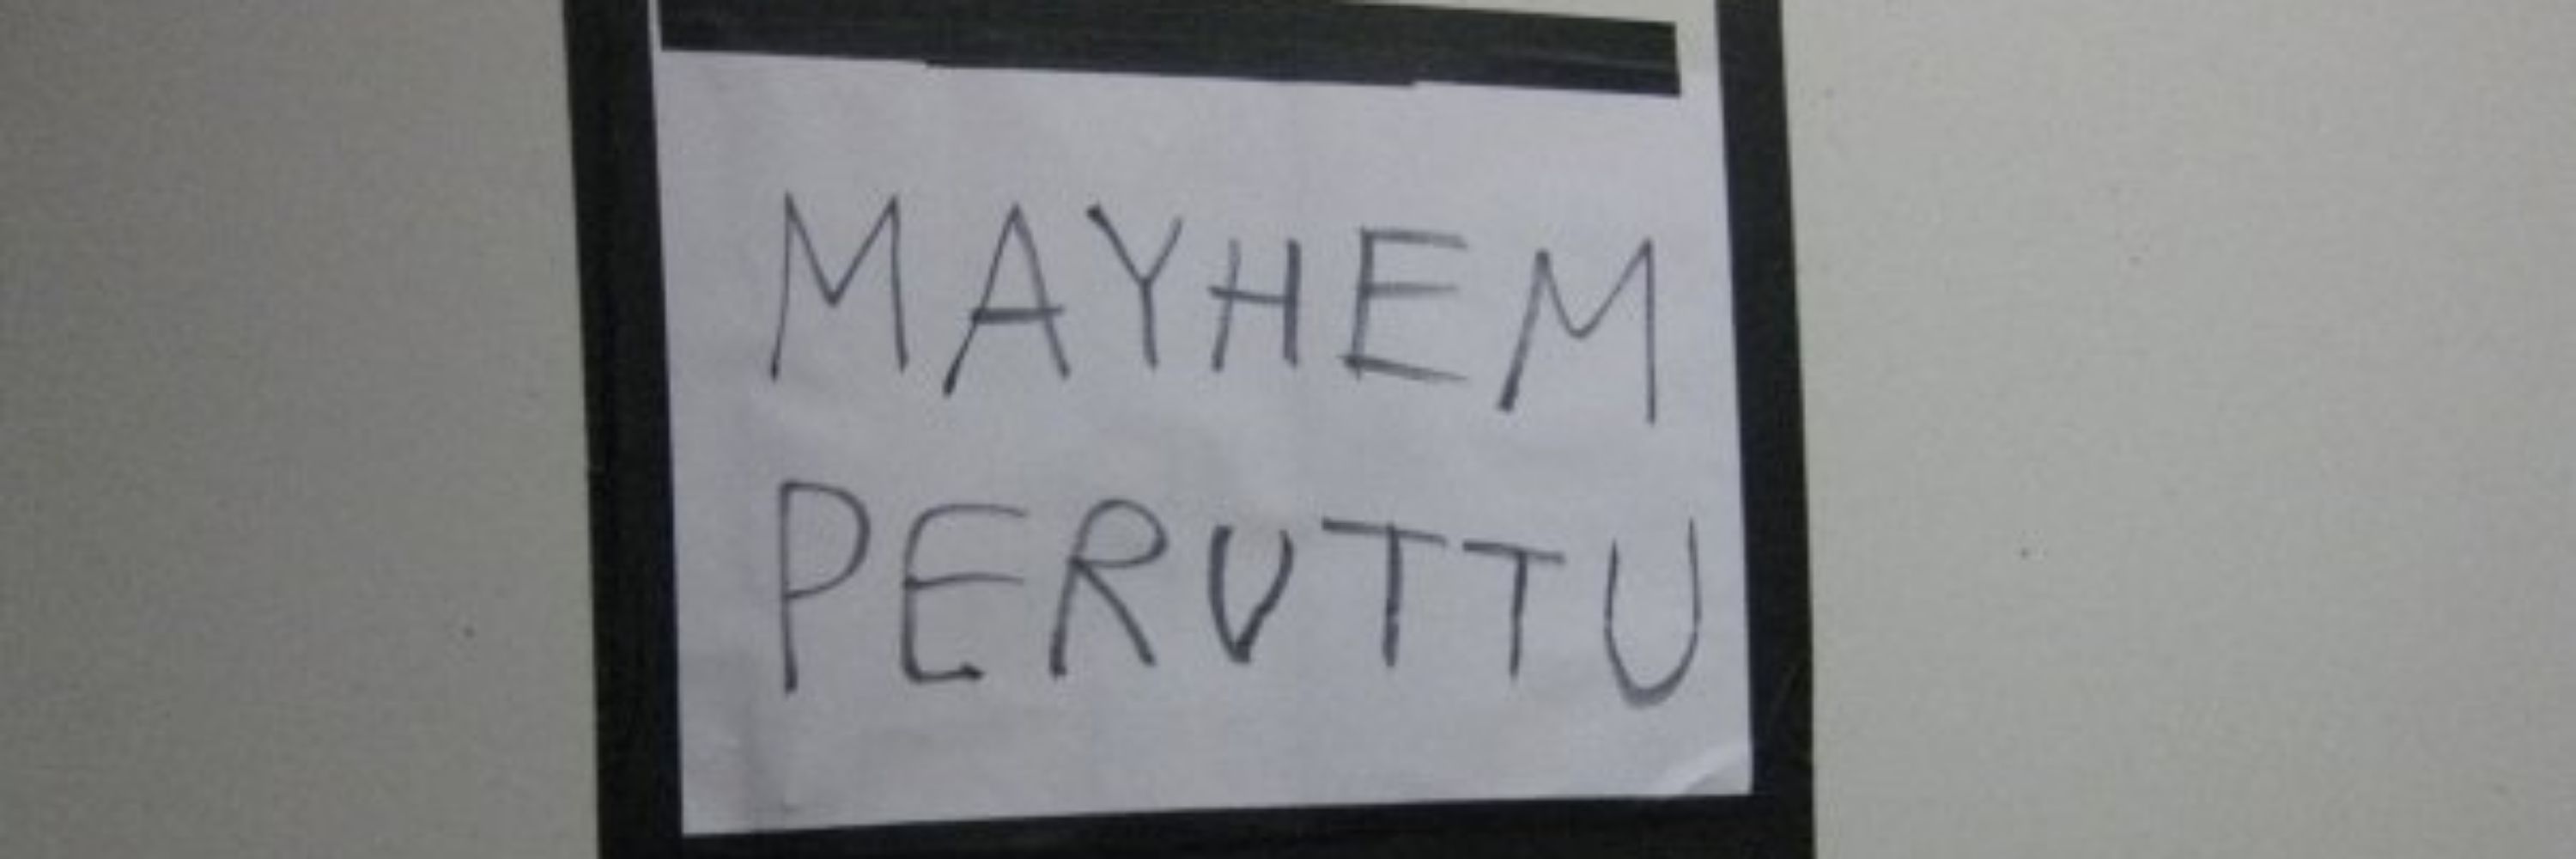 MAYHEM
PERUTTU